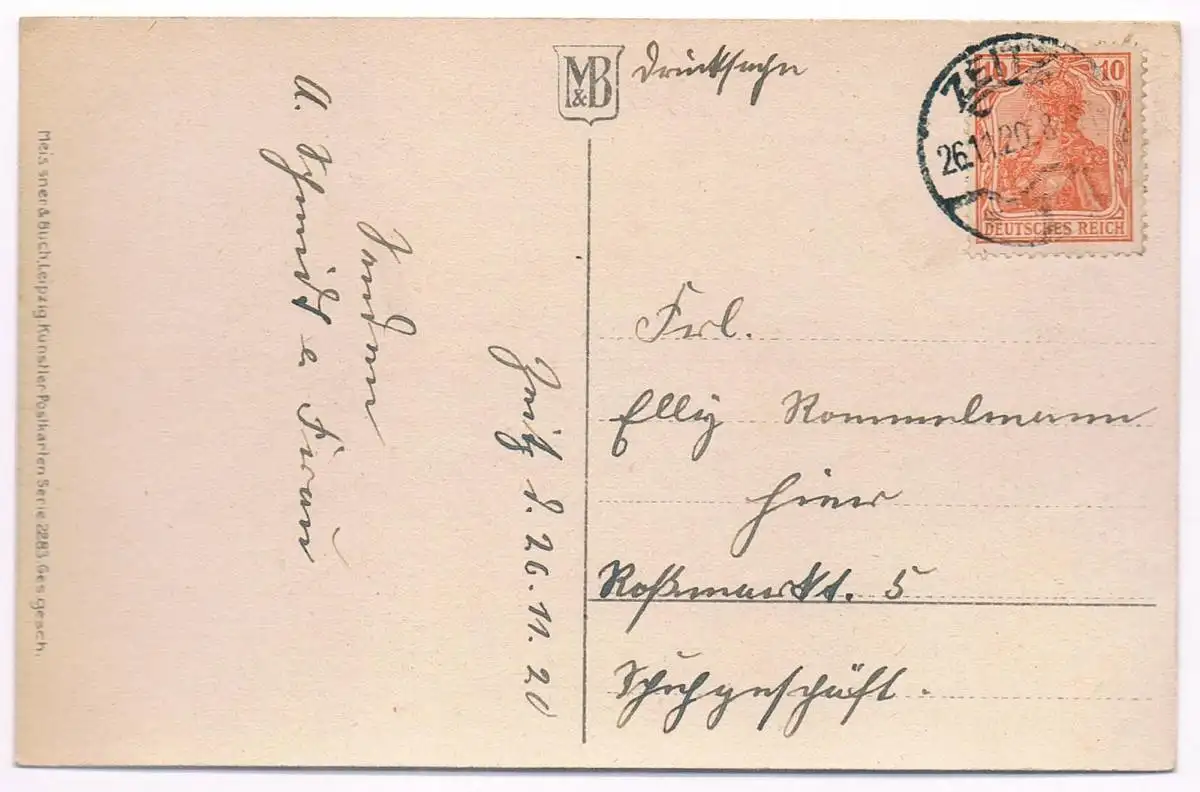 Drucksache
M&B
ZEITZ
26.11.20. 8
10 10
DEUTSCHES REICH
Meissner & Buch, Leipzig. Künstler-Postkarten Serie 2283 Ges. gesch.
Zeitz d. 26.11.20
senden
A. Schmidt u Frau
Frl.
Elly Rommelmann
Hier
Roßmarkt. 5
Schuhgeschäft.